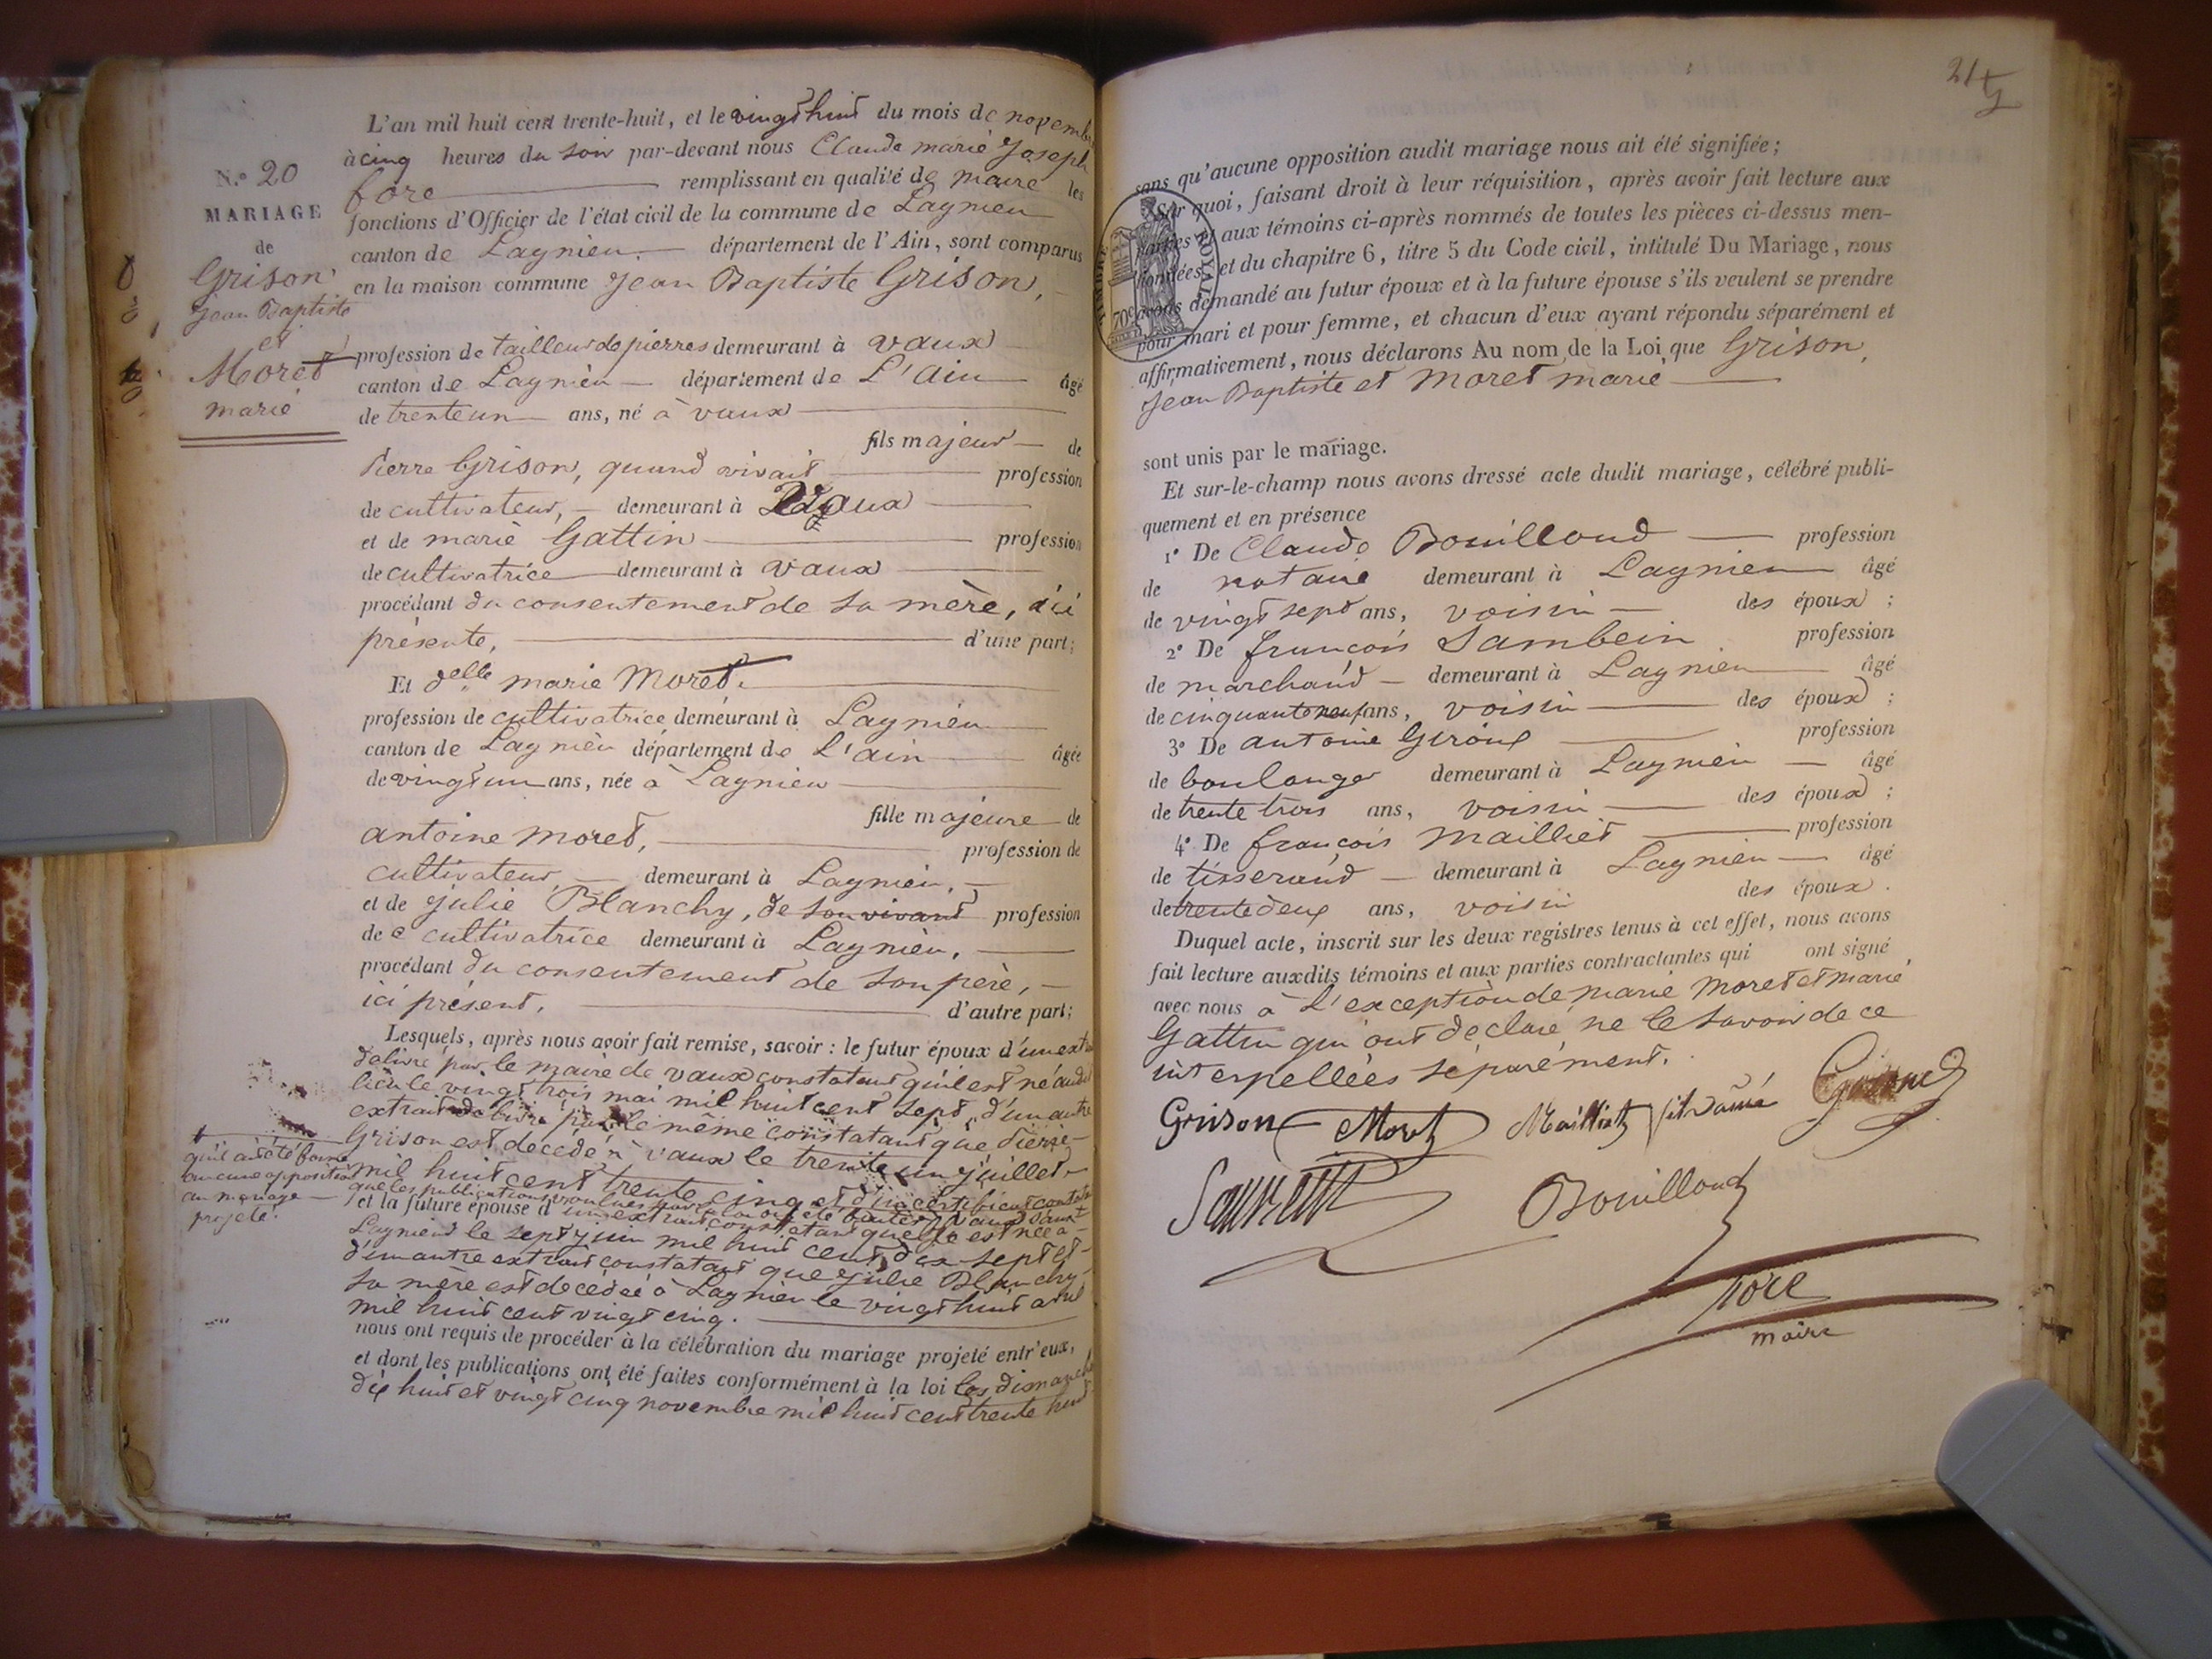 N.o 20
MARIAGE
de
Grison
Jean Baptiste
et
Moret
marie
L'an mil huit cent trente-huit, et le vingt huit du mois de novembre
à cinq heures du soir par-devant nous Claude marie Joseph
fore remplissant en qualité de maire les
fonctions d'Officier de l'état civil de la commune de Lagnieu
canton de Lagnieu département de l'Ain, sont comparus
en la maison commune Jean Baptiste Grison,
profession de tailleur de pierres demeurant à vaux
canton de Lagnieu département de L'ain âgé
de trente un ans, né à vaux
fils majeur de
Pierre Grison, quand vivait profession
de cultivateur, demeurant à Vaux
et de marie Gattin profession
de cultivatrice demeurant à vaux
procédant du consentement de sa mère, ici
présente, d'une part;
Et delle marie Moret.
profession de cultivatrice demeurant à Lagnieu
canton de Lagnieu département de L'ain âgée
de vingt un ans, née à Lagnieu
fille majeure de
antoine moret, profession de
cultivateur demeurant à Lagnieu,
et de julie Blanchy, de son vivant profession
de cultivatrice demeurant à Lagnieu,
procédant du consentement de son père,
ici présent, d'autre part;
Lesquels, après nous avoir fait remise, savoir : le futur époux d'un extrait
délivré par le maire de vaux constatant qu'il est né audit
lieu le vingt trois mai mil huit cent sept, d'un autre
extrait délivré par le même constatant que Pierre
Grison est décédé à vaux le trente un juillet
mil huit cent trente cinq et d'un certificat constatant
que les publications voulues par la loi ont été faites à vaux sans
qu'il ait été formé
aucune opposition
au mariage
projeté.
et la future épouse d'un extrait constatant qu'elle est née à
Lagnieu le sept juin mil huit cent dix-sept et
d'un autre extrait constatant que julie Blanchy
sa mère est décédée à Lagnieu le vingt huit avril
mil huit cent vingt cinq.
nous ont requis de procéder à la célébration du mariage projeté entr'eux,
et dont les publications ont été faites conformément à la loi les dimanches
dix huit et vingt cinq novembre mil huit cent trente huit
TIMBRE ROYAL
70c
sans qu'aucune opposition audit mariage nous ait été signifiée;
Sur quoi, faisant droit à leur réquisition, après avoir fait lecture aux
parties et aux témoins ci-après nommés de toutes les pièces ci-dessus men-
tionnées, et du chapitre 6, titre 5 du Code civil, intitulé Du Mariage, nous
avons demandé au futur époux et à la future épouse s'ils veulent se prendre
pour mari et pour femme, et chacun d'eux ayant répondu séparément et
affirmativement, nous déclarons Au nom de la Loi que Grison,
Jean Baptiste et Moret marie
sont unis par le mariage.
Et sur-le-champ nous avons dressé acte dudit mariage, célébré publi-
quement et en présence
1o De Claude Bouilloud profession
de notaire demeurant à Lagnieu âgé
de vingt sept ans, voisin des époux ;
2o De françois Sambein profession
de marchand demeurant à Lagnieu âgé
de cinquante neuf ans, voisin des époux ;
3o De antoine Giroux profession
de boulanger demeurant à Lagnieu âgé
de trente trois ans, voisin des époux ;
4o De françois Mailliet profession
de tisserand demeurant à Lagnieu âgé
de trente deux ans, voisin des époux.
Duquel acte, inscrit sur les deux registres tenus à cet effet, nous avons
fait lecture auxdits témoins et aux parties contractantes qui ont signé
avec nous à L'exception de marie moret et marie
Gattin qui ont déclaré ne le savoir de ce
interpellées séparément.
Grison Moret Mailliet
Bouilloud
fore
maire